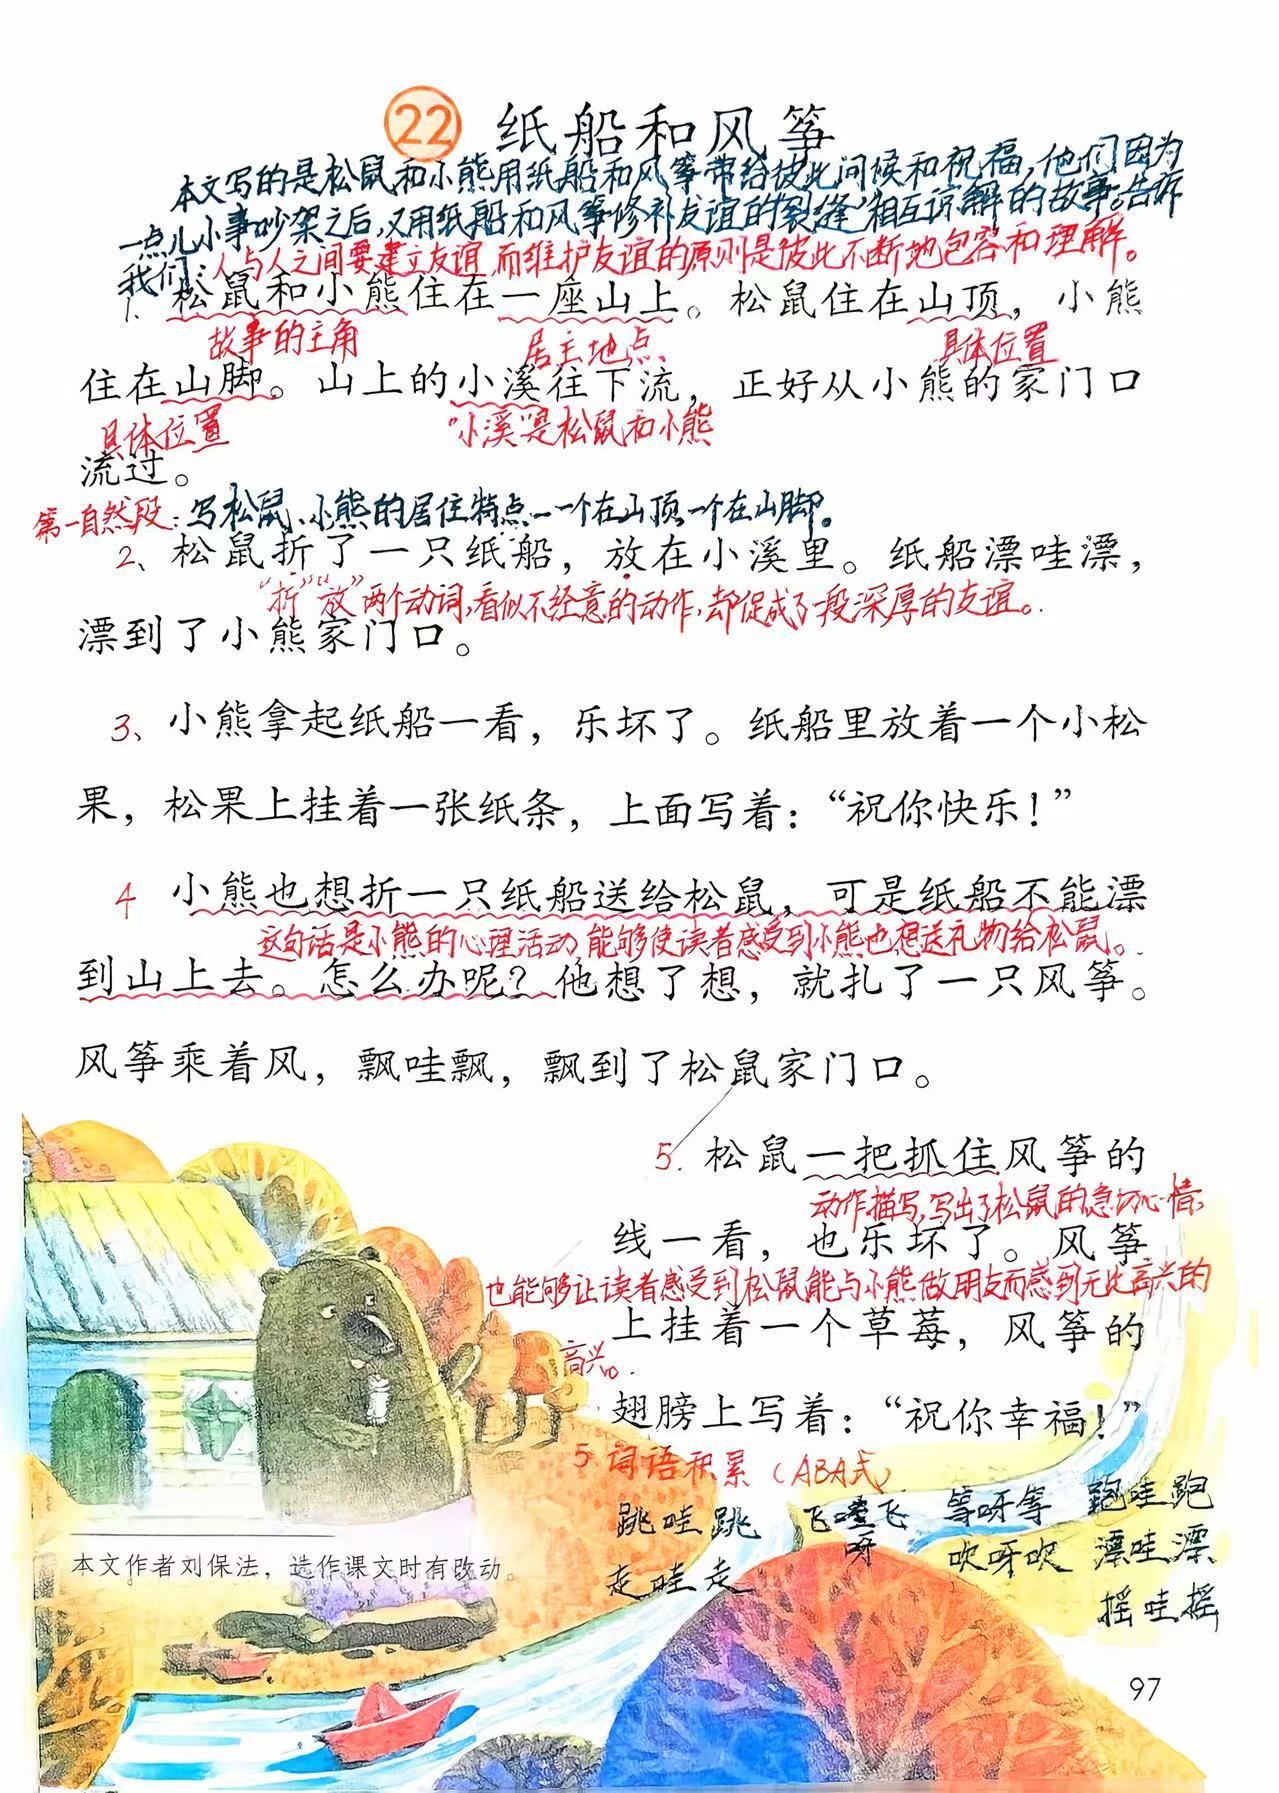 22 纸船和风筝
本文写的是松鼠和小熊用纸船和风筝带给彼此问候和祝福，他们因为
一点儿小事吵架之后，又用纸船和风筝修补友谊的“裂缝”相互谅解的故事。告诉
我们：人与人之间要建立友谊，而维护友谊的原则是彼此不断地包容和理解。
1、松鼠和小熊住在一座山上。松鼠住在山顶，小熊
故事的主角 居主地点 具体位置
住在山脚。山上的小溪往下流，正好从小熊的家门口
具体位置 “小溪”是松鼠和小熊
流过。
第一自然段：写松鼠、小熊的居住特点一一个在山顶，一个在山脚。
2、松鼠折了一只纸船，放在小溪里。纸船漂哇漂，
“折”“放”两个动词，看似不经意的动作，却促成了一段深厚的友谊。
漂到了小熊家门口。
3、小熊拿起纸船一看，乐坏了。纸船里放着一个小松
果，松果上挂着一张纸条，上面写着：“祝你快乐！”
4 小熊也想折一只纸船送给松鼠，可是纸船不能漂
这句话是小熊的心理活动，能够使读者感受到小熊也想送礼物给松鼠。
到山上去。怎么办呢？他想了想，就扎了一只风筝。
风筝乘着风，飘哇飘，飘到了松鼠家门口。
5. 松鼠一把抓住风筝的
动作描写，写出了松鼠的急切心情，
线一看，也乐坏了。风筝
也能够让读者感受到松鼠能与小熊做朋友而感到无比高兴的
上挂着一个草莓，风筝的
高兴。
翅膀上写着：“祝你幸福！”
5 词语积累（ABA式）
跳哇跳 飞哇飞 等呀等 跑哇跑
呀 吹呀吹 漂哇漂
走哇走
摇哇摇
本文作者刘保法，选作课文时有改动。
97